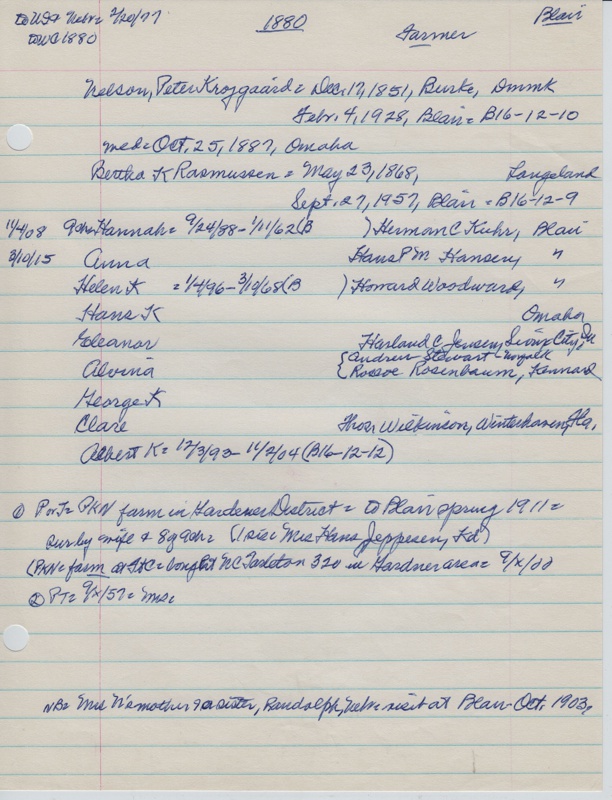 to USA Nebr = 2/20/77
to WC 1880
1880
Farmer
Blair
Nelson, Peter Krojgaard = Dec. 17, 1851, Burke, Dnmk
Febr. 4, 1928, Blair = B16-12-10
med = Oct. 25, 1887, Omaha
Bertha K Rasmussen = May 23, 1868, Langeland
Sept. 27, 1957, Blair = B16-12-9
11/4/08 9 ch = Hannah = 9/24/88 - 1/11/62 (B ) Herman C Kuhr, Blair
3/10/15 Anna Hans P M Hansen, "
Helen K = 1/4/96 - 3/10/68 (B ) Howard Woodward, "
Hans K Omaha
Eleanor Harland C Jensen, Sioux City, Ia
Alvina { Andrew Stewart - Norfolk
{ Roscoe Rosenbaum, Kennard
George K
Clare Thos. Wilkinson, Winterhaven, Fla.
Albert K = 12/3/93 - 11/2/04 (B16-12-12)
① P or T = PKN farm in Gardener District = to Blair spring 1911 =
sur by wife + 8 ch = (1 sis = Mrs Hans Jeppesen, Fd)
(PKN = farm at = bought NC Tarleton 320 in Gardner area = 9/x/00
② PT = 9/x/57 = Mrs
NB = Mrs N's mother + a sister, Randolph, Nebr = visit at Blair - Oct. 1903.